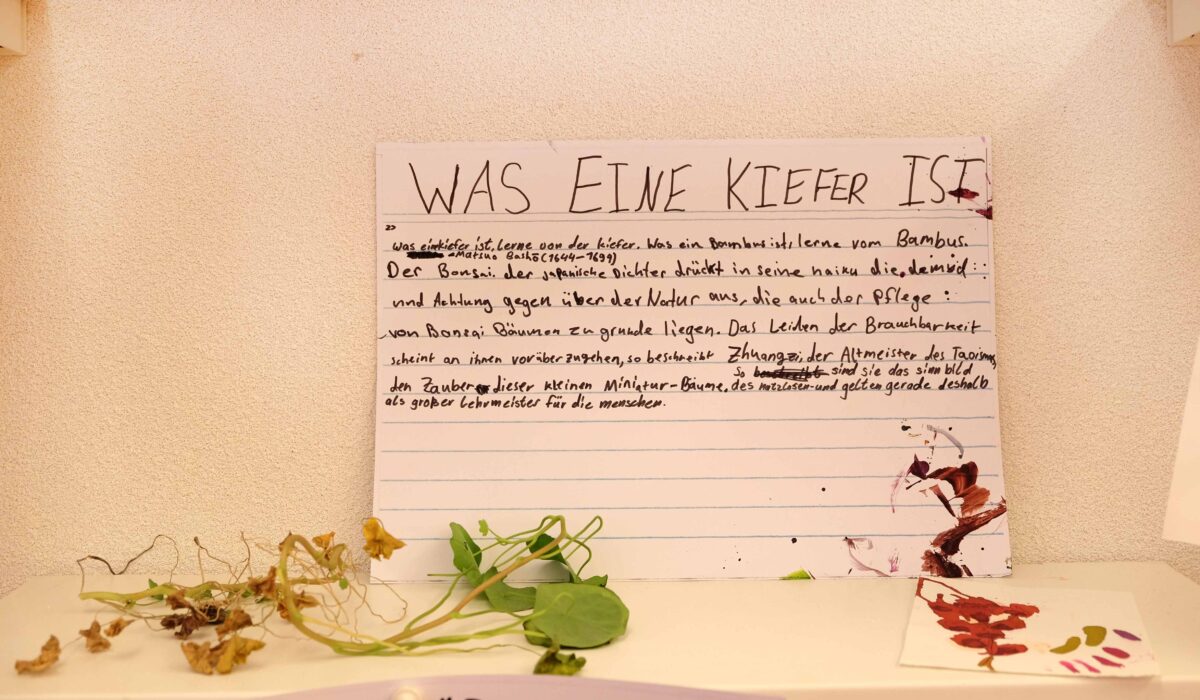 WAS EINE KIEFER IST
"
was einkiefer ist, lerne von der kiefer. Was ein Bambus ist, lerne vom Bambus.
-Matsuo Bashō (1644-1694)
Der Bonsai. der japanische Dichter drückt in seine haiku die demud
und Achtung gegen über der Natur aus, die auch der Pflege :
von Bonsai Bäumen zu grunde liegen. Das Leiden der Brauchbarkeit
scheint an ihnen vorüber zugehen, so beschreibt Zhuangzi, der Altmeister des Taoismus
den Zauber dieser kleinen Miniatur-Bäume. So sind sie das sinnbild
des nutzlosen-und gelten gerade deshalb
als großer Lehrmeister für die menschen.